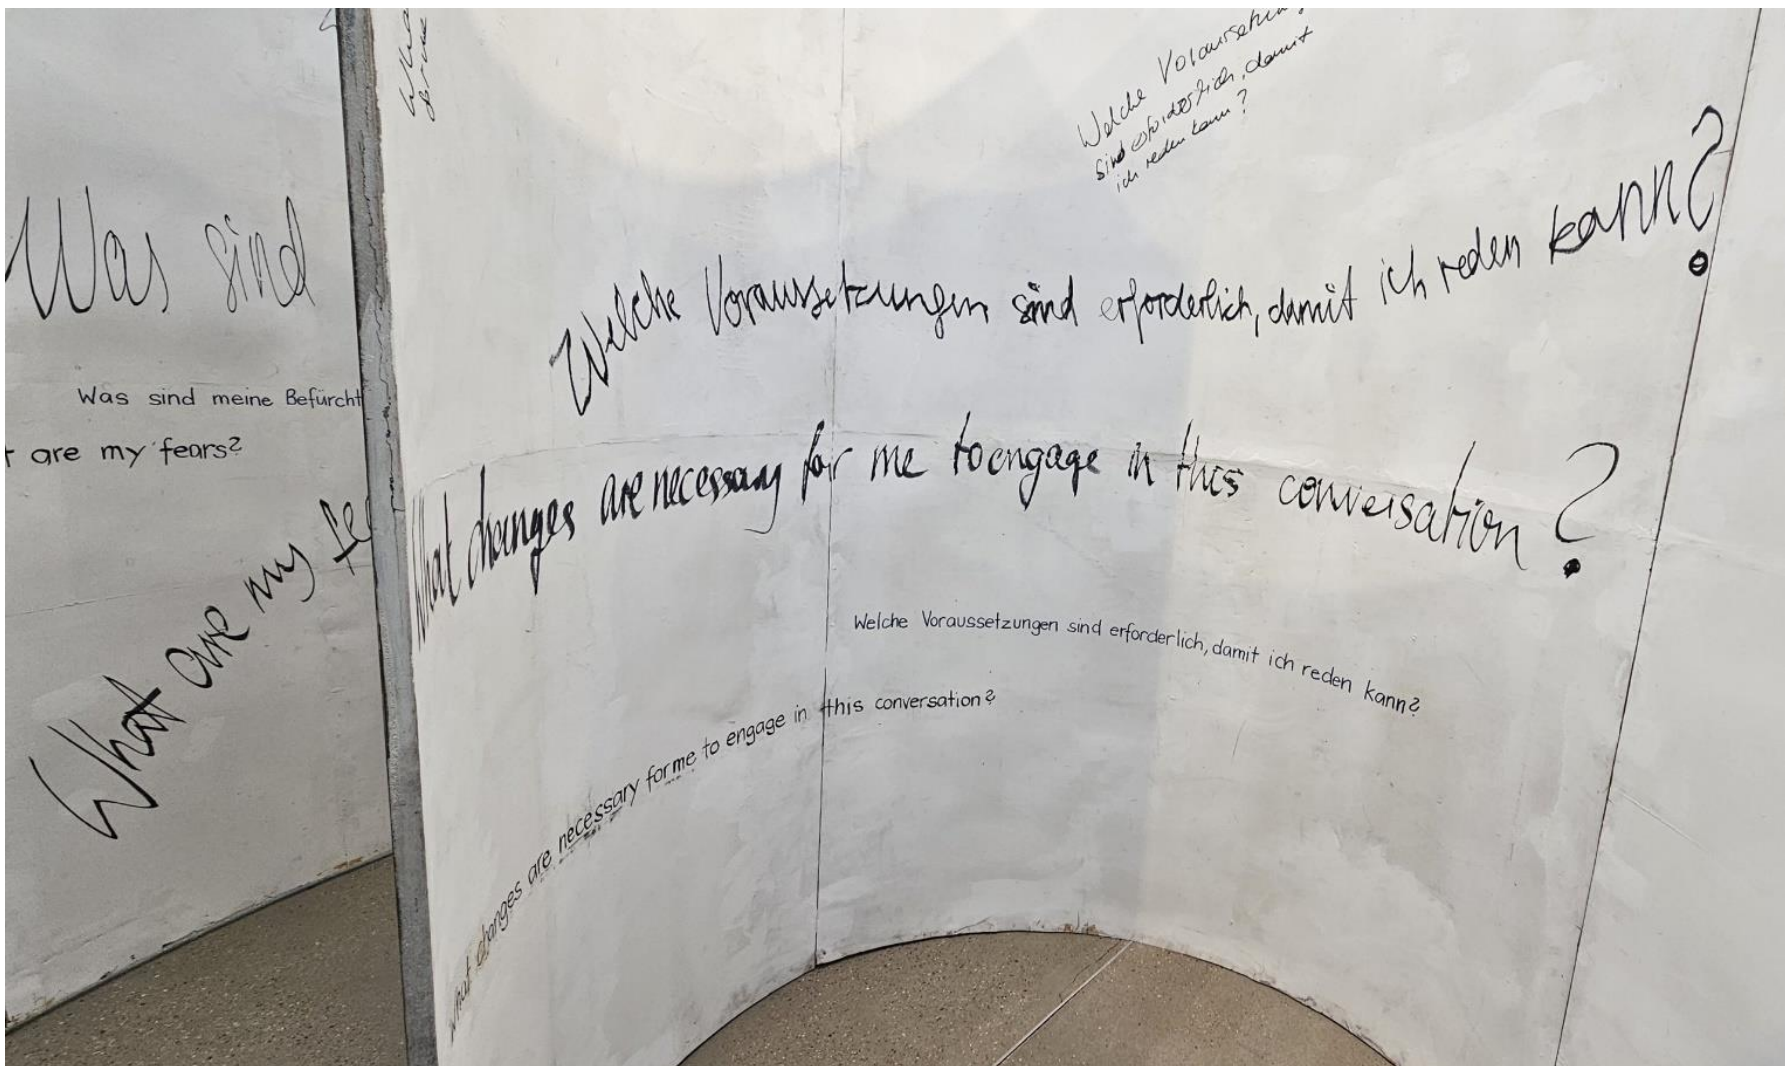 Was sind
Was sind meine Befürcht
are my fears?
What are my fe
Welche Voraussetzung
sind erforderlich, damit
ich reden kann?
Welche Voraussetzungen sind erforderlich, damit ich reden kann?
What changes are necessary for me to engage in this conversation?
Welche Voraussetzungen sind erforderlich, damit ich reden kann?
What changes are necessary for me to engage in this conversation?